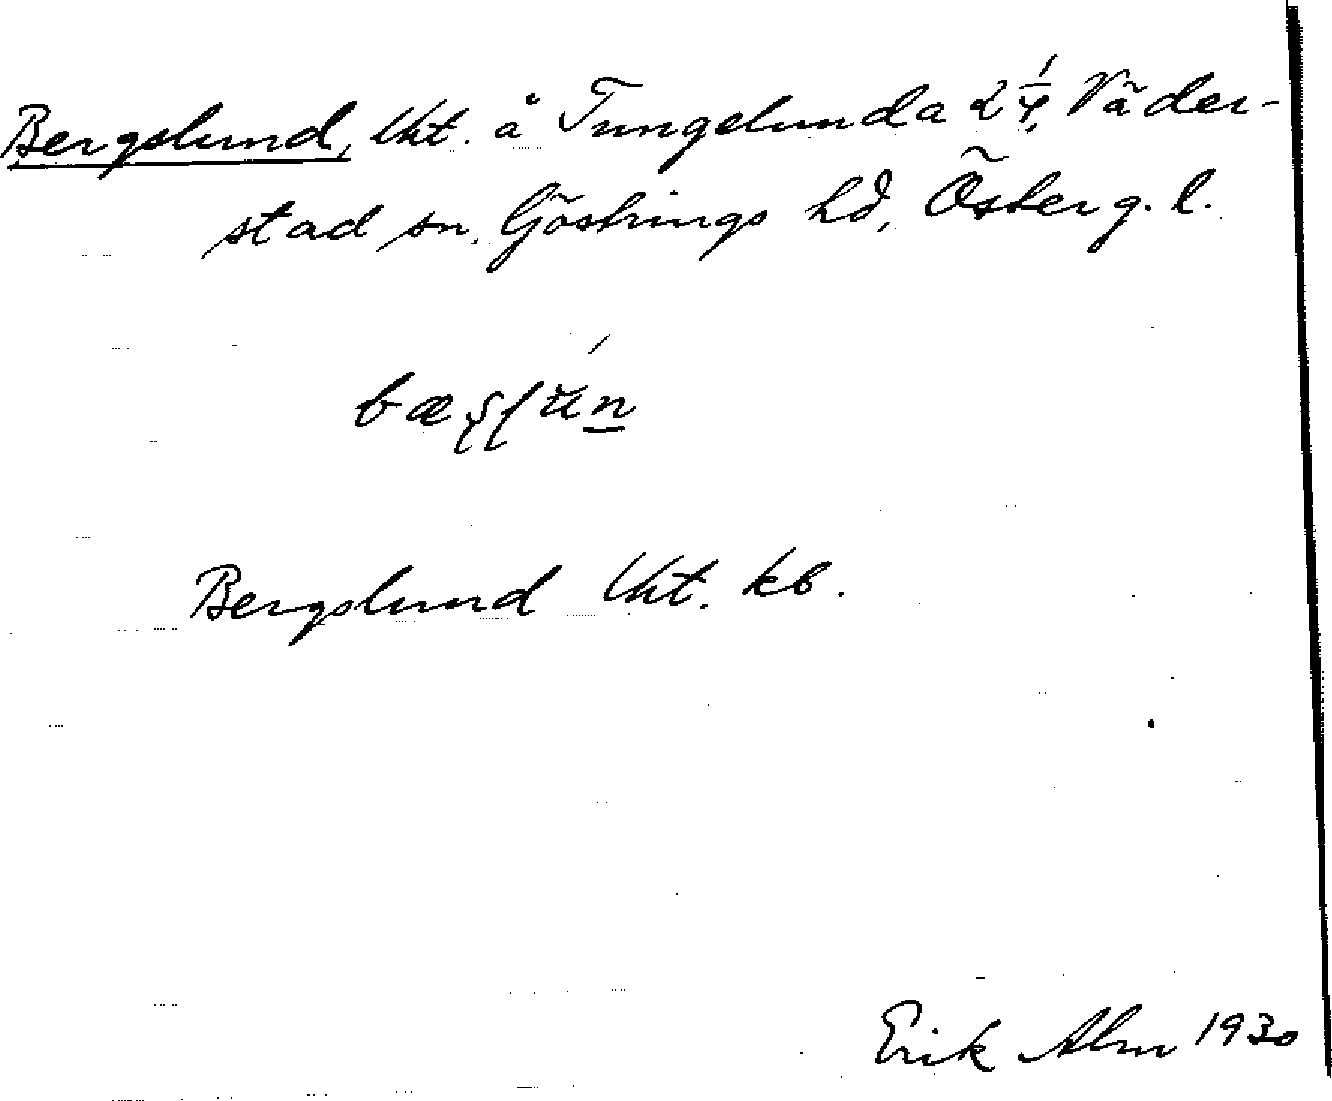 Bergslund, lht. å Tungelunda 2 1/4, Väder-
stad sn. Göstrings hd, Österg. l.
Bergslund lht. kb.
Erik Alm 1930